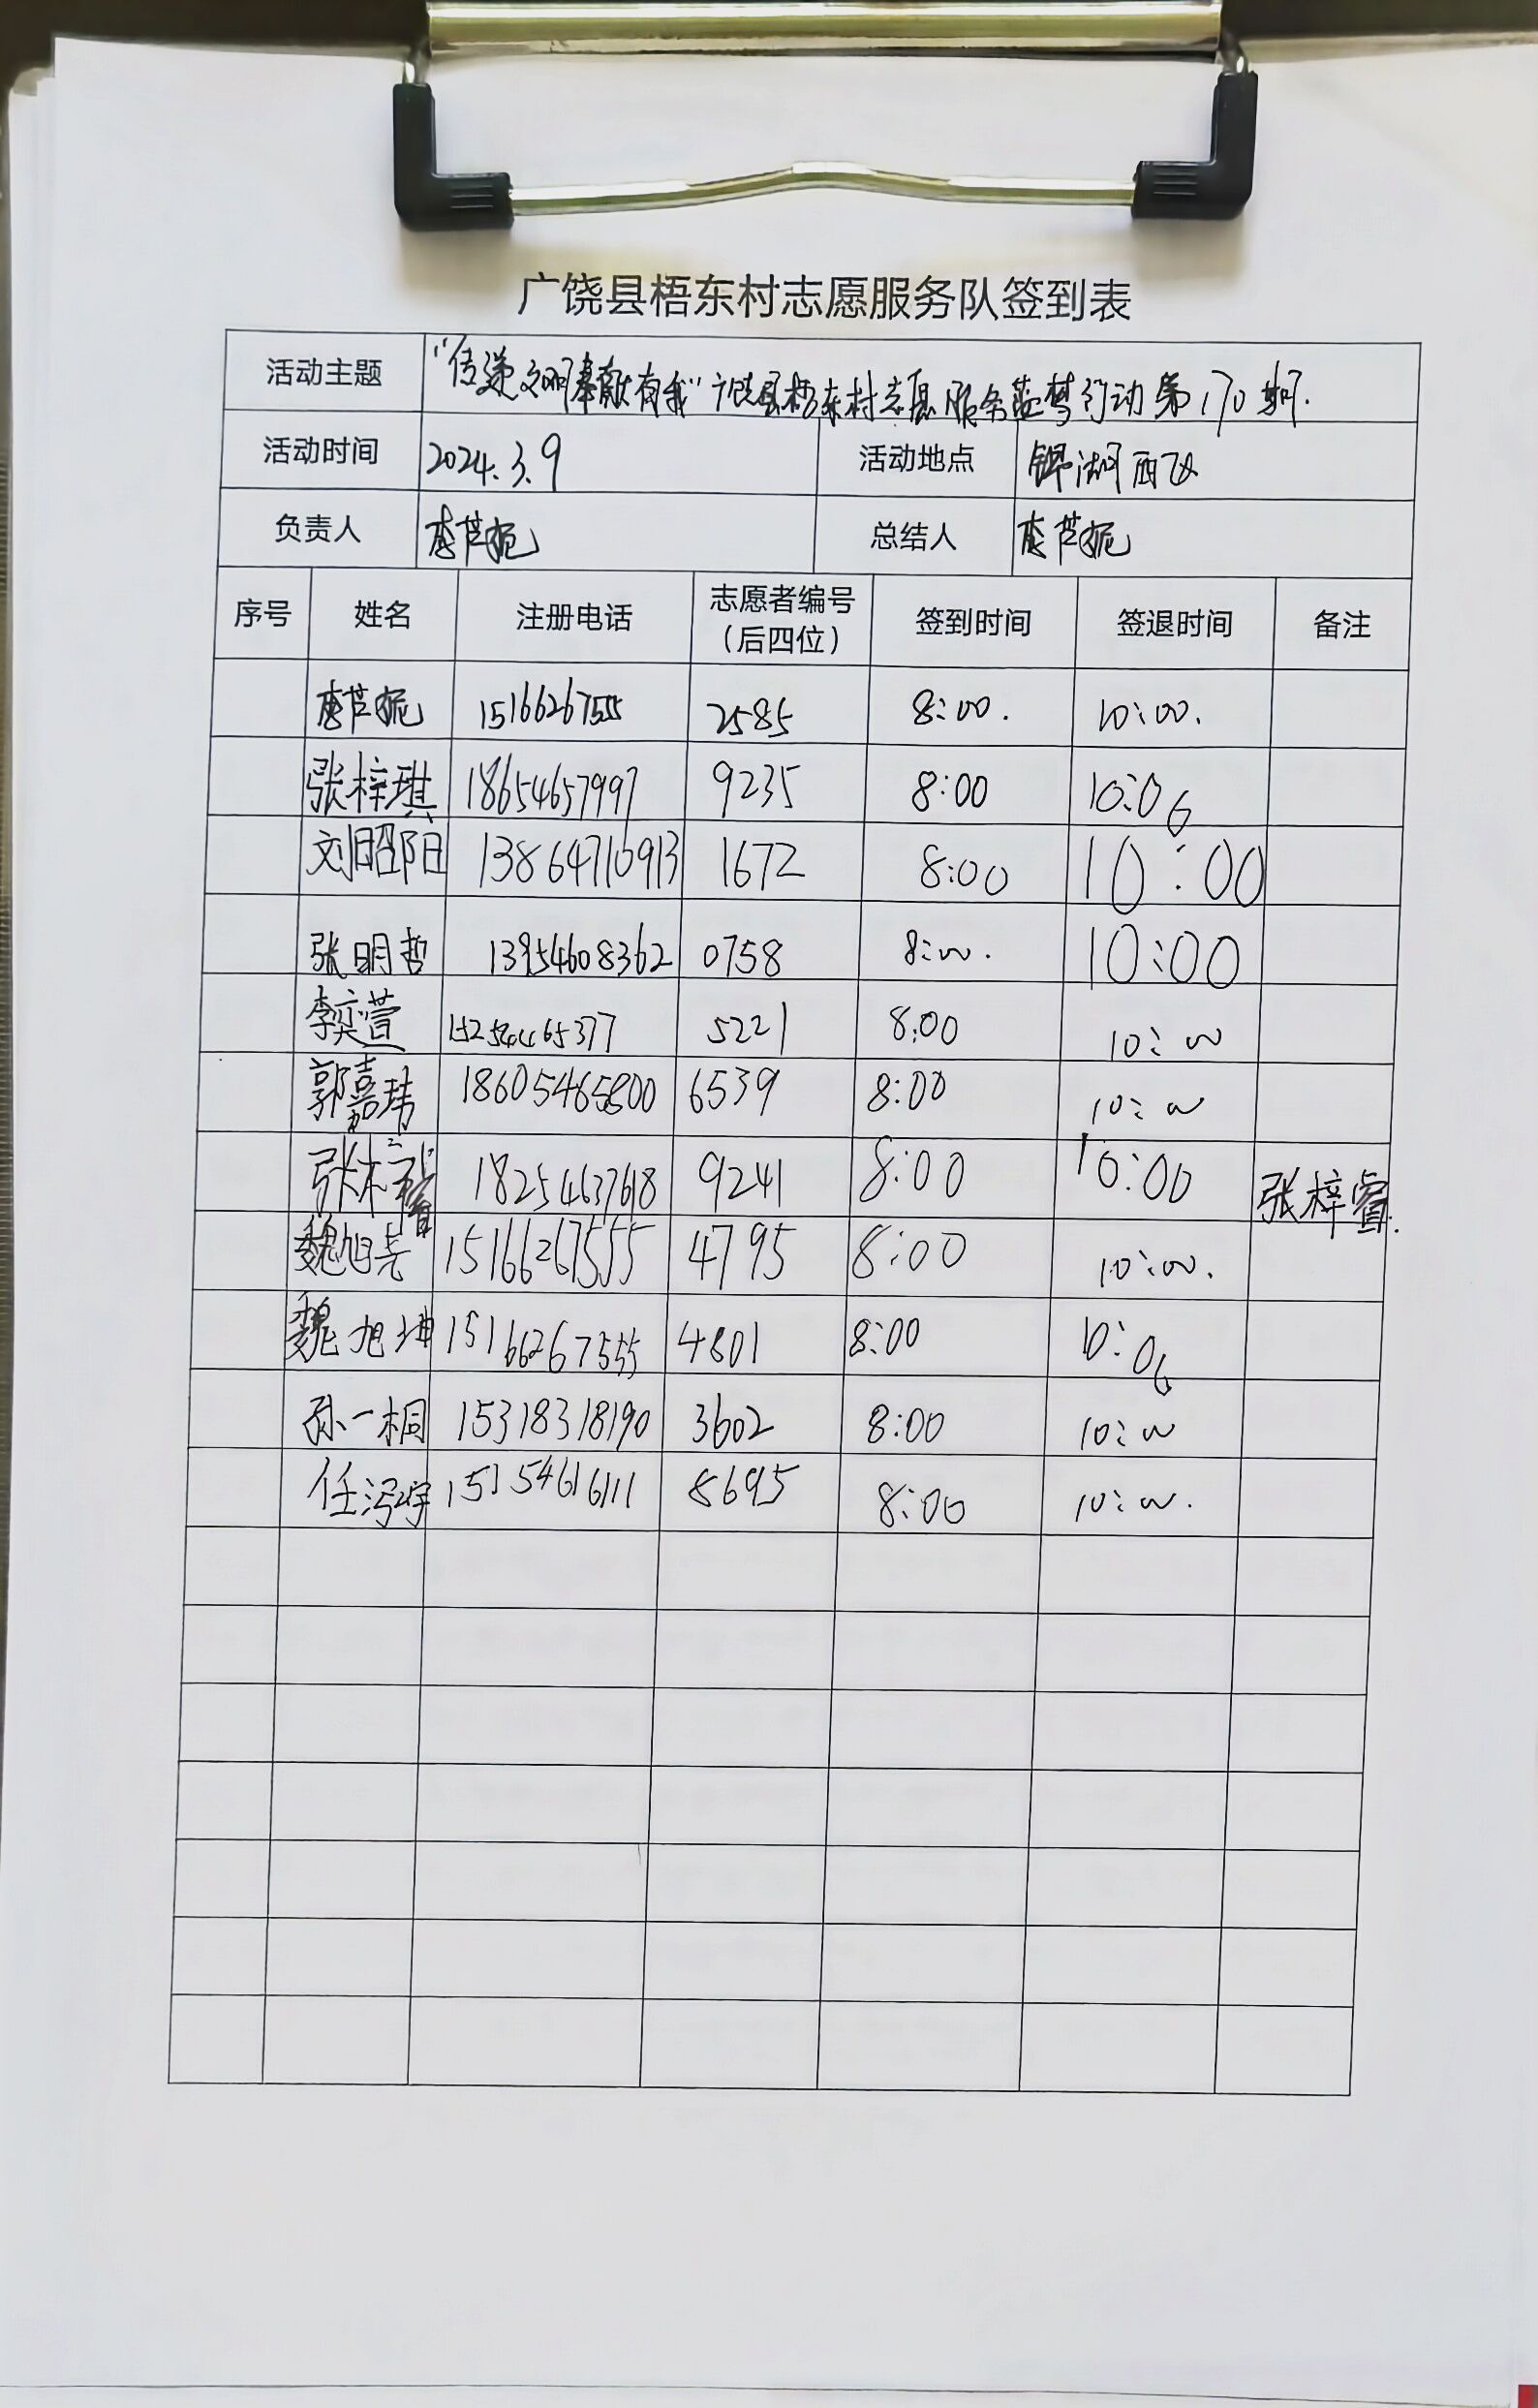 广饶县梧东村志愿服务队签到表
活动主题 "传递文明奉献有我"广饶县梧东村志愿服务蓝梦行动第170期.
活动时间 2024.3.9 活动地点 锦湖西区
负责人 总结人
序号 姓名 注册电话 志愿者编号（后四位） 签到时间 签退时间 备注
15166267555 2585 8:00. 10:00.
张梓琪 18654657997 9235 8:00 10:00
刘昭阳 13864710913 1672 8:00 10:00
张明哲 13954608362 0758 8:00. 10:00
李奕萱 15254465377 5221 8:00 10:00
郭嘉玮 18605465800 6539 8:00 10:00
张梓睿 18254637618 9241 8:00 10:00 张梓睿.
魏旭尧 15166267555 4795 8:00 10:00.
魏旭坤 15166267555 4801 8:00 10:00
孙一桐 15318318190 3602 8:00 10:00
任 8695 8:00 10:00.